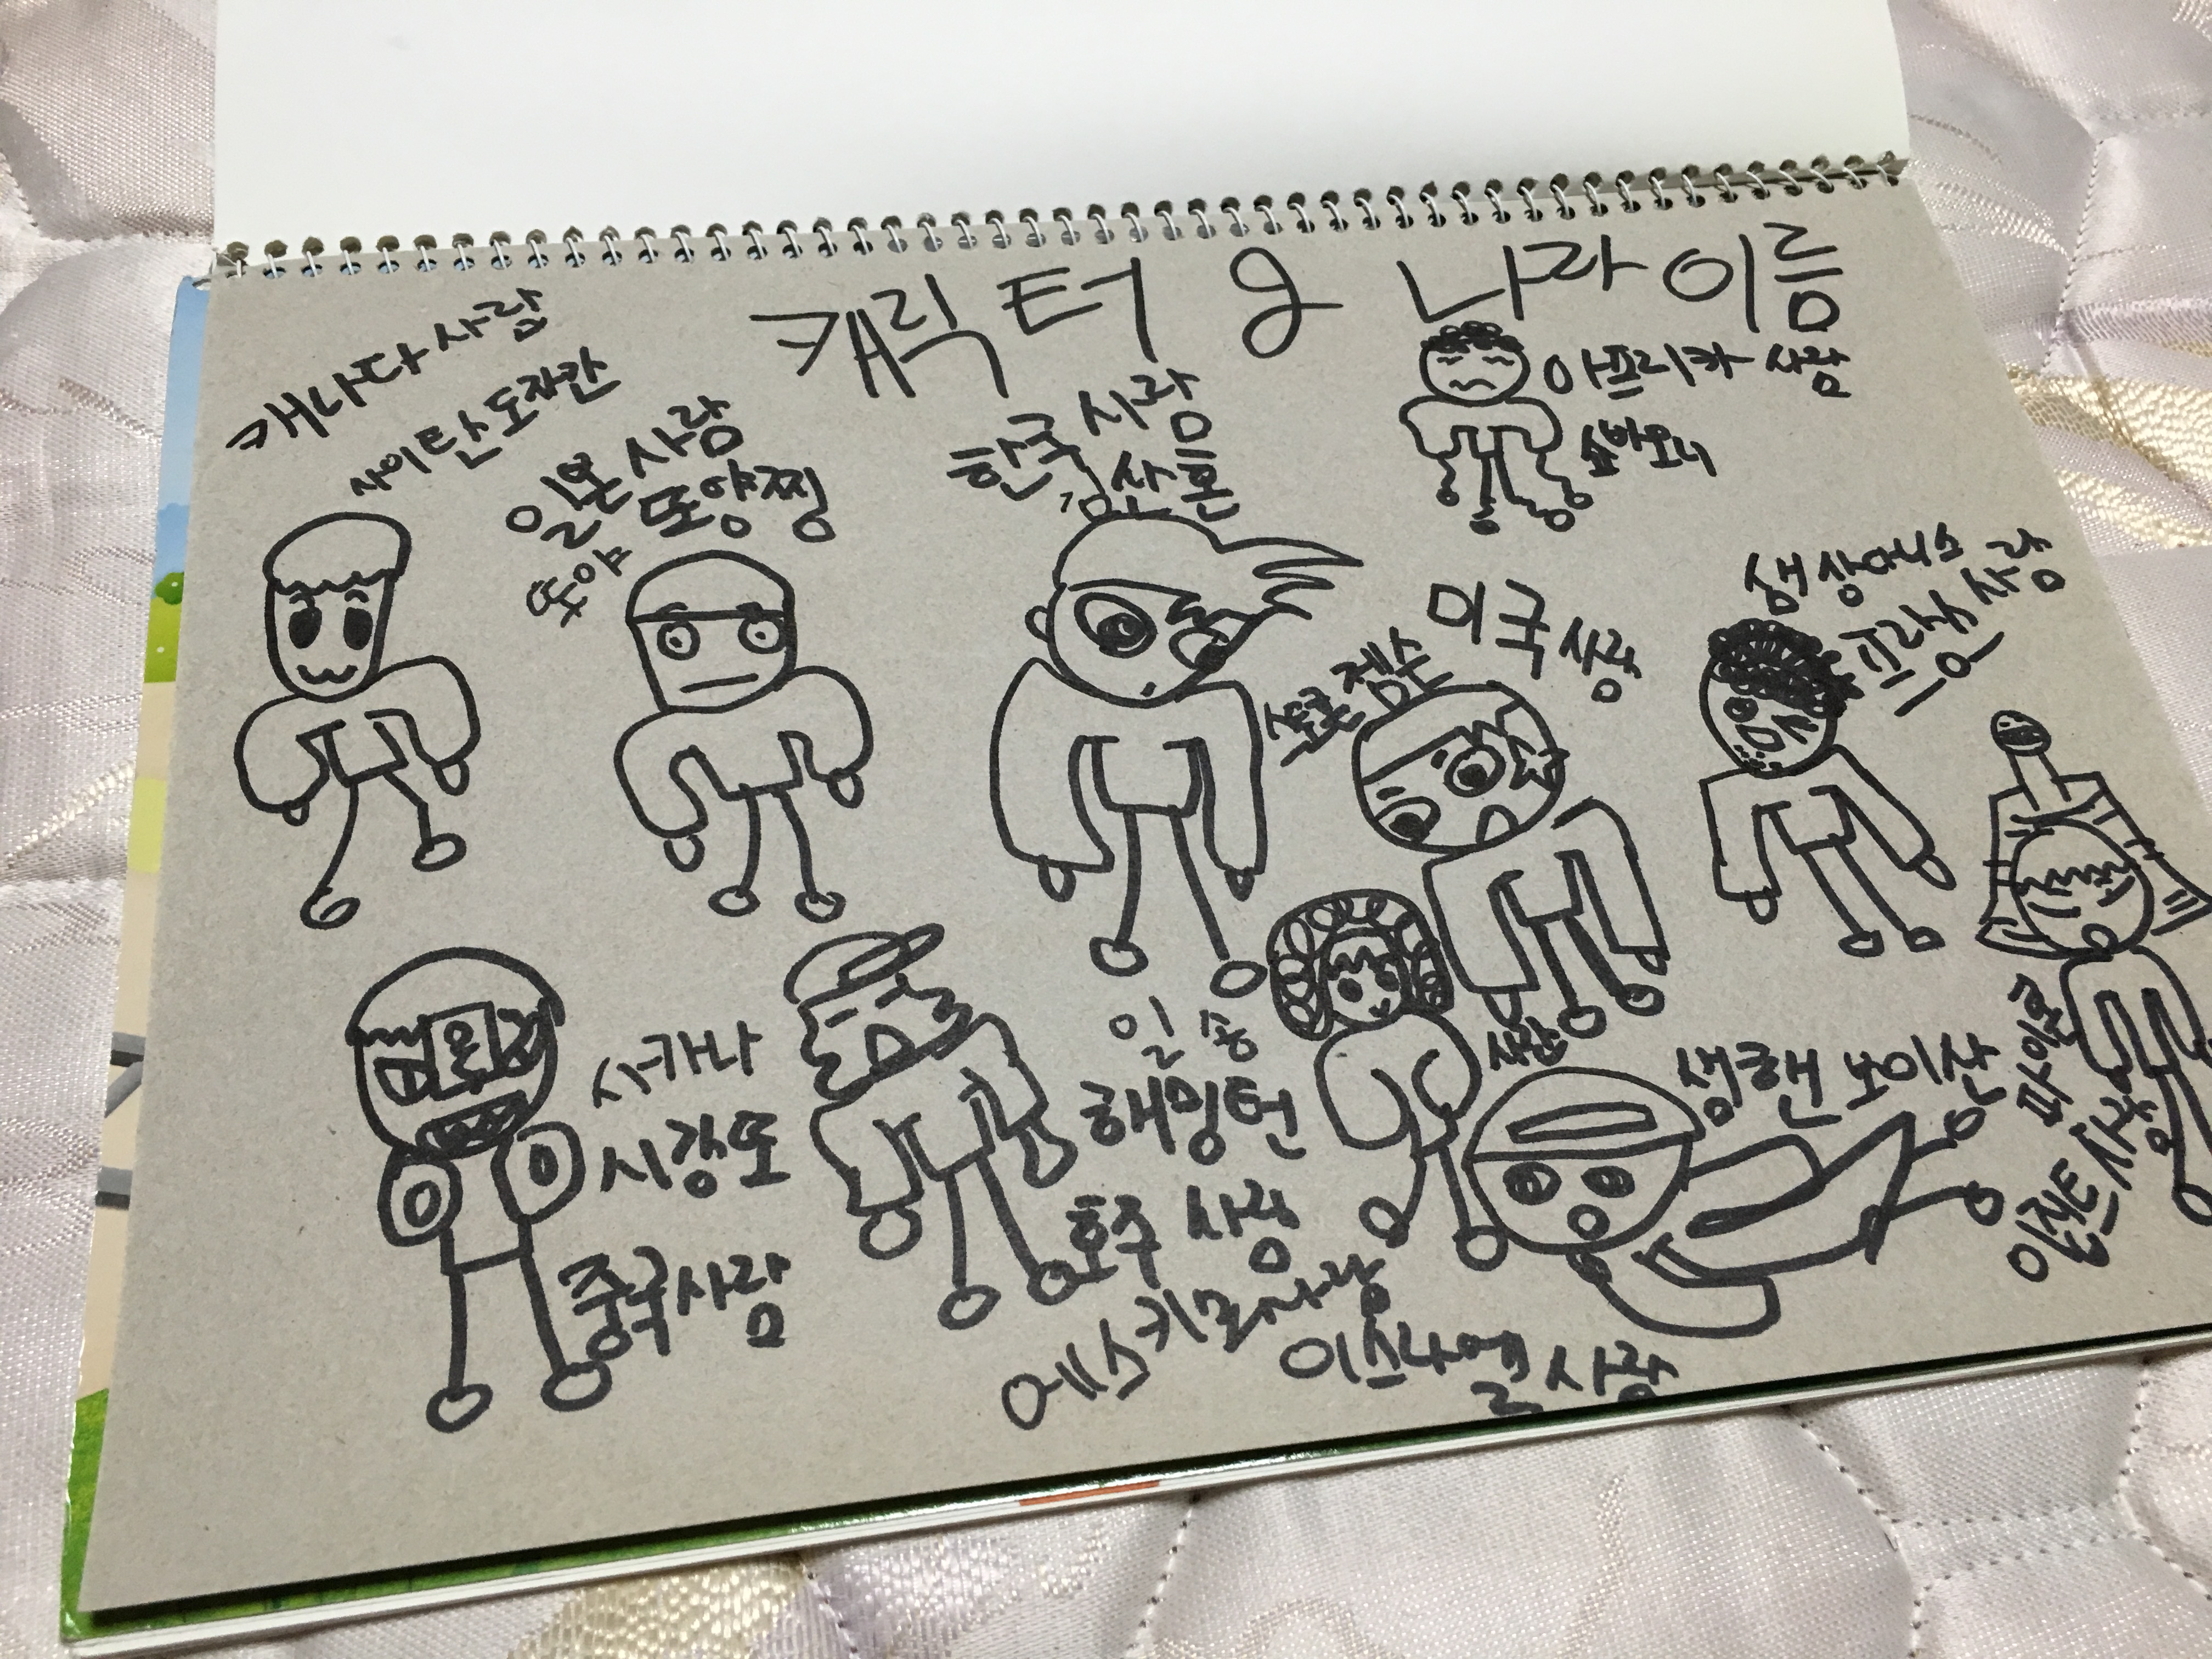 캐릭터 & 나라 이름
캐나다 사람
사이탄 도자칸
일본 사람
또양찡
또야
한국 사람
김산혼
아프리카 사람
숌바오니
미국 사람
스톤 젬스
생상어니스
프랑스 사람
서카나
시강또
중국사람
일송
해밍턴
호주 사람
에스키모사람
사만
생핸 보이산
이스라엘 사람
파이론
인천트사람